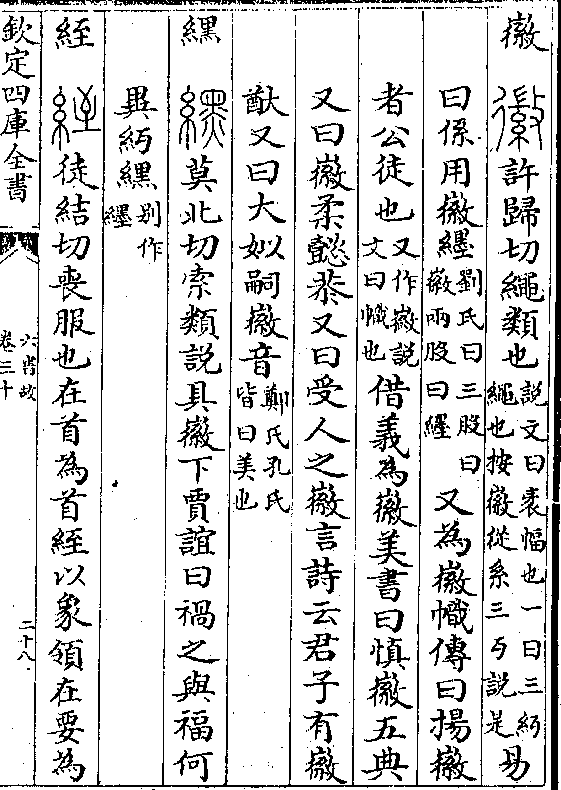 徽 𢾁 許歸切繩類也説文曰衺幅也一曰三糾繩也按徽從糸三糾説是易
曰係用徽纆劉氏曰三股曰徽兩股曰纆又為徽幟傳曰揚徽
者公徒也又作徽説文曰幟也借義為徽美書曰慎徽五典
又曰徽柔懿恭又曰受人之徽言詩云君子有徽
猷又曰大姒嗣徽音鄭氏孔氏皆曰美也
纆 莫北切索類説具徽下賈誼曰禍之與福何
異糾纆别作纆
絰 徒結切喪服也在首為首絰以象領在要為
欽定四庫全書
六書故
卷三十
二十八